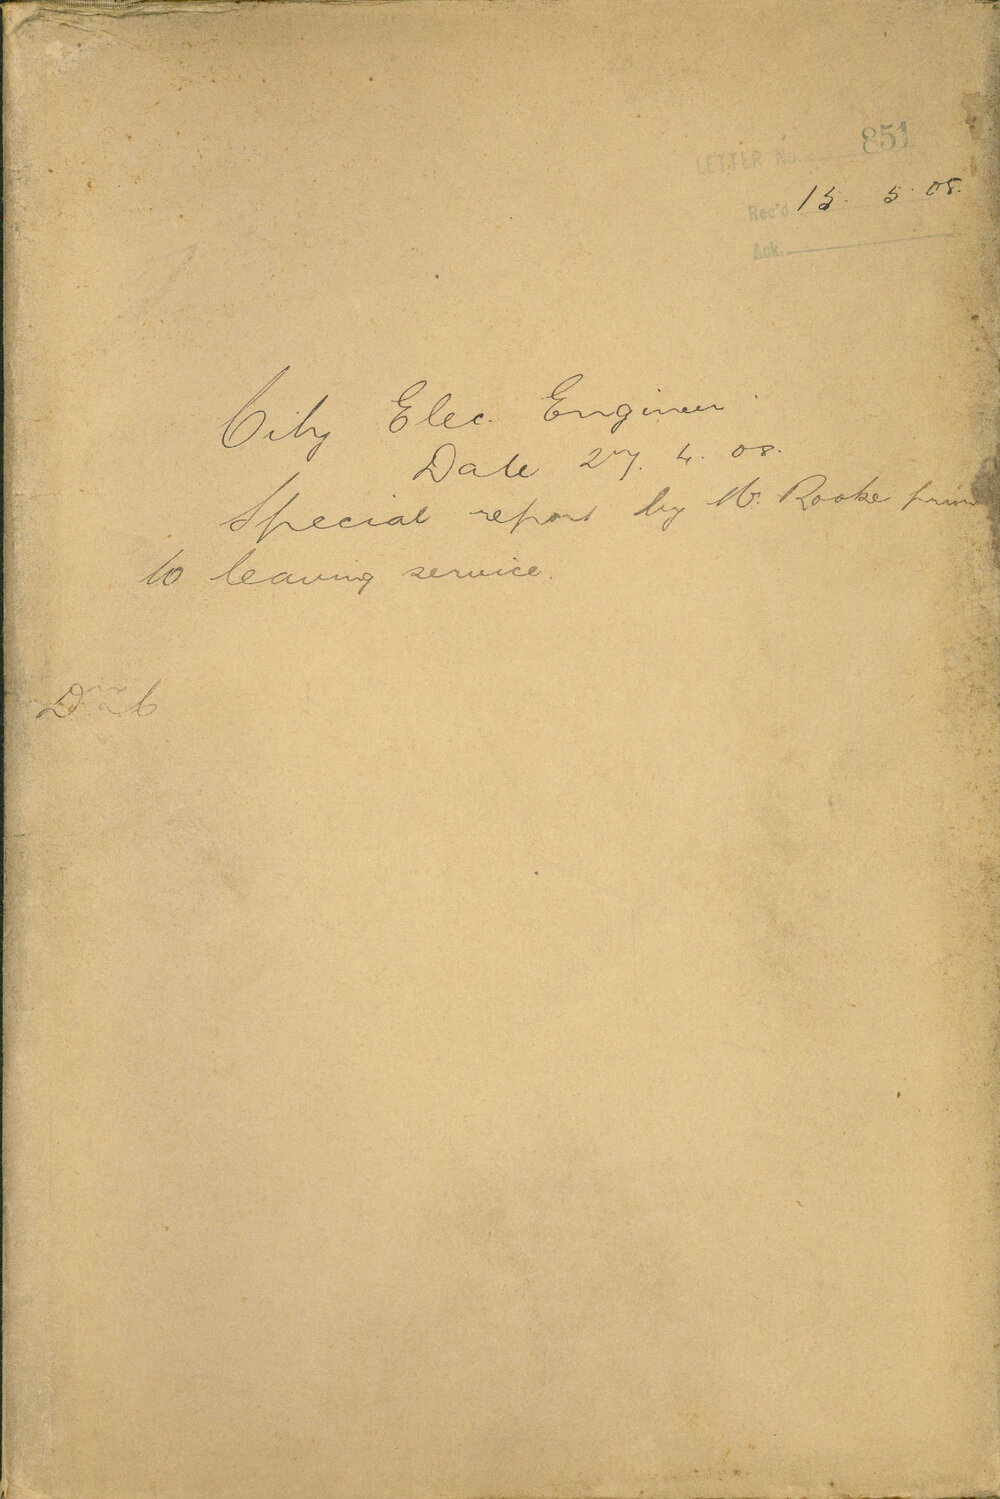 LETTER No. 851
Rec'd 15. 5. 08.
Ack.
City Elec. Engineer.
Date 27. 4. 08.
Special report by Mr. Rooke prior
to leaving service.